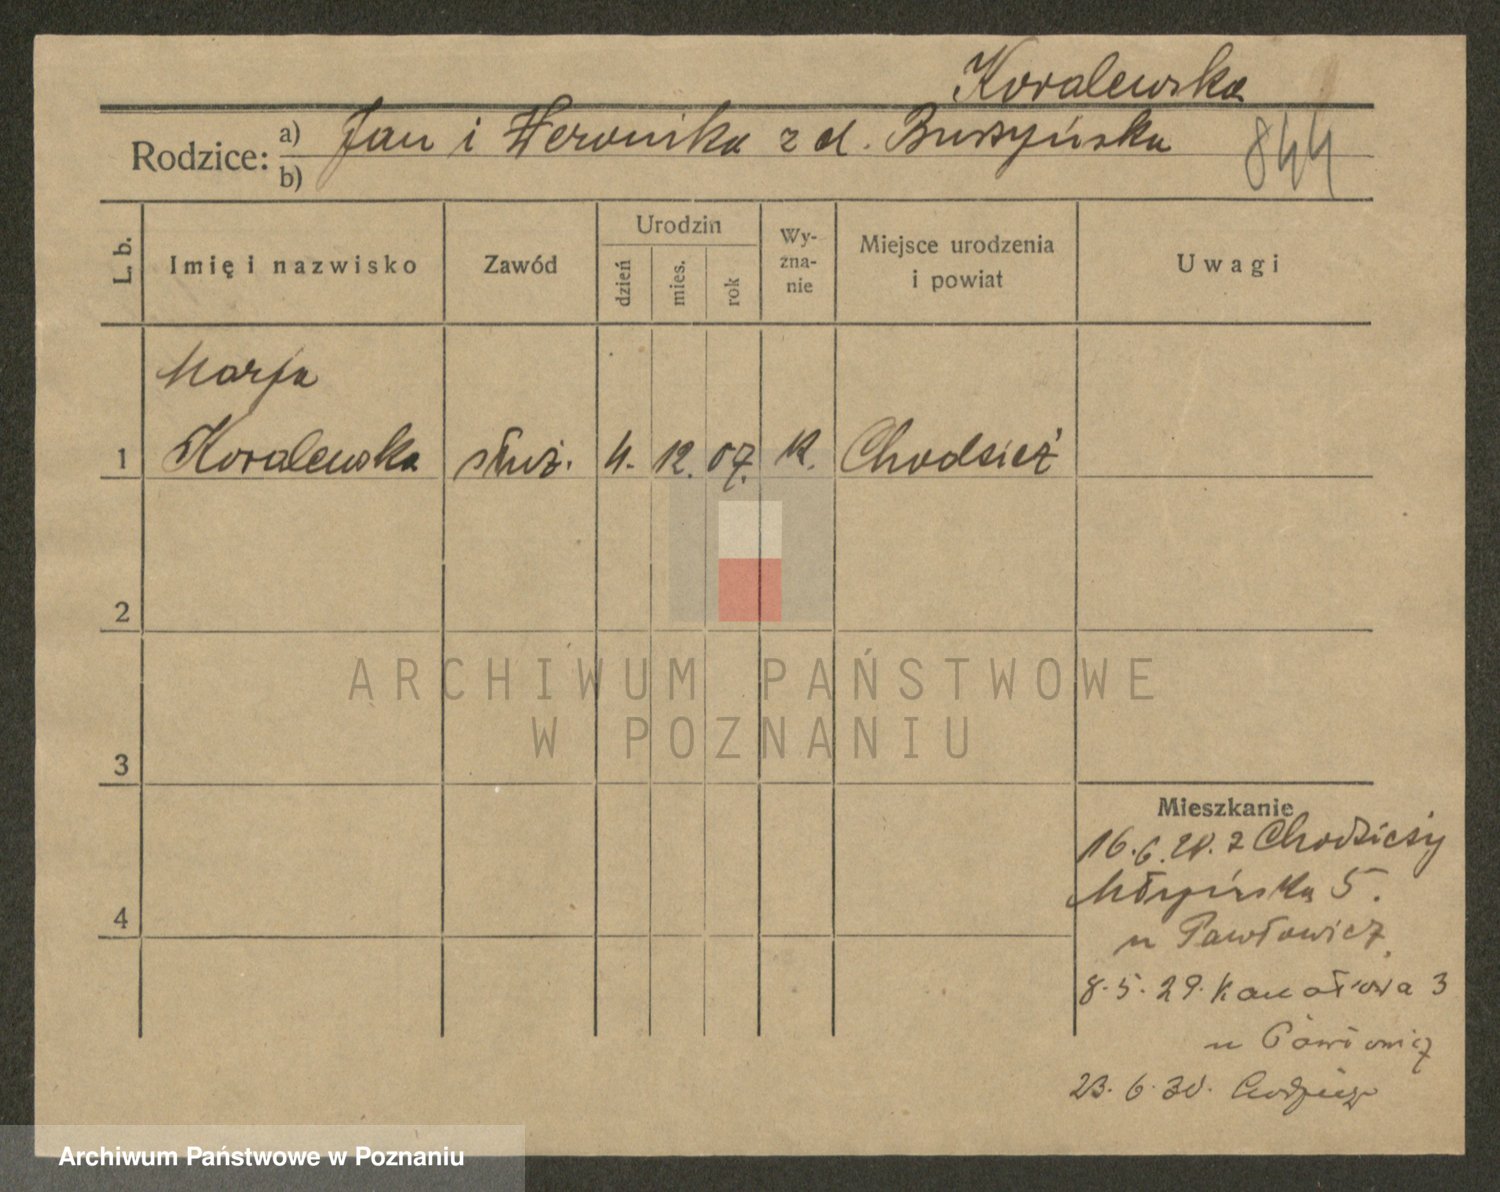 Koralewska
Rodzice: a) Jan i Weronika z d. Buszyńska
b)
844
L. b.
Imię i nazwisko
Zawód
Urodzin
dzień
mies.
rok
Wy-
zna-
nie
Miejsce urodzenia
i powiat
Uwagi
Marja
1 Koralewska służ. 4. 12. 07. k. Chodzież
2
3
4
Mieszkanie
16.6.28. z Chodzieży
Młyńska 5.
u Pawłowicz.
8.5.29. Kanałowa 3
u Pawłowicz
23.6.30.
ARCHIWUM PAŃSTWOWE
W POZNANIU
Archiwum Państwowe w Poznaniu